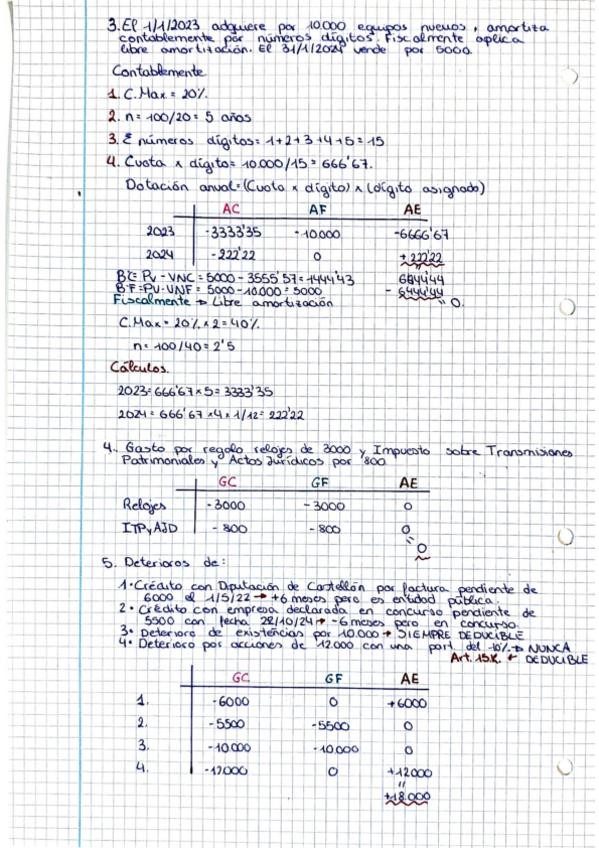 3. El 1/1/2023 adquiere por 10.000 equipos nuevos, amortiza
contablemente por números dígitos. Fiscalmente aplica
libre amortización. El 31/1/2024 vende por 5000.
Contablemente
1. C.Max = 20%.
2. n = 100/20 = 5 años
3. Σ números dígitos = 1+2+3+4+5 = 15
4. Cuota x dígito = 10.000/15 = 666'67.
Dotación anual = (Cuota x dígito) x (dígito asignado)
AC AF AE
2023 -3333'35 -10.000 -6666'67
2024 -222'22 0 +222'22
BC = PV - VNC = 5000 - 3555'57 = 1444'43
6444'44
BF = PV - VNF = 5000 - 10.000 = 5000
- 6444'44
Fiscalmente → Libre amortización
" 0.
C.Max = 20% x 2 = 40%.
n = 100/40 = 2'5
Cálculos.
2023 = 666'67 x 5 = 3333'35
2024 = 666'67 x 4 x 1/12 = 222'22
4. Gasto por regalo relojes de 3000 y Impuesto sobre Transmisiones
Patrimoniales y Actos Jurídicos por 800
GC GF AE
Relojes -3000 -3000 0
ITPyAJD -800 -800 0
" 0
5. Deterioros de:
1· Crédito con Diputación de Castellón por factura pendiente de
6000 el 1/5/22 → +6 meses pero es entidad pública.
2· Crédito con empresa declarada en concurso pendiente de
5500 con fecha 28/10/24 → -6 meses pero en concurso.
3· Deterioro de existencias por 10.000 → SIEMPRE DEDUCIBLE
4· Deterioro por acciones de 12.000 con una part. del 10% → NUNCA
Art. 15.K. ← DEDUCIBLE
GC GF AE
1. -6000 0 +6000
2. -5500 -5500 0
3. -10000 -10000 0
4. -12000 0 +12000
"
+18.000